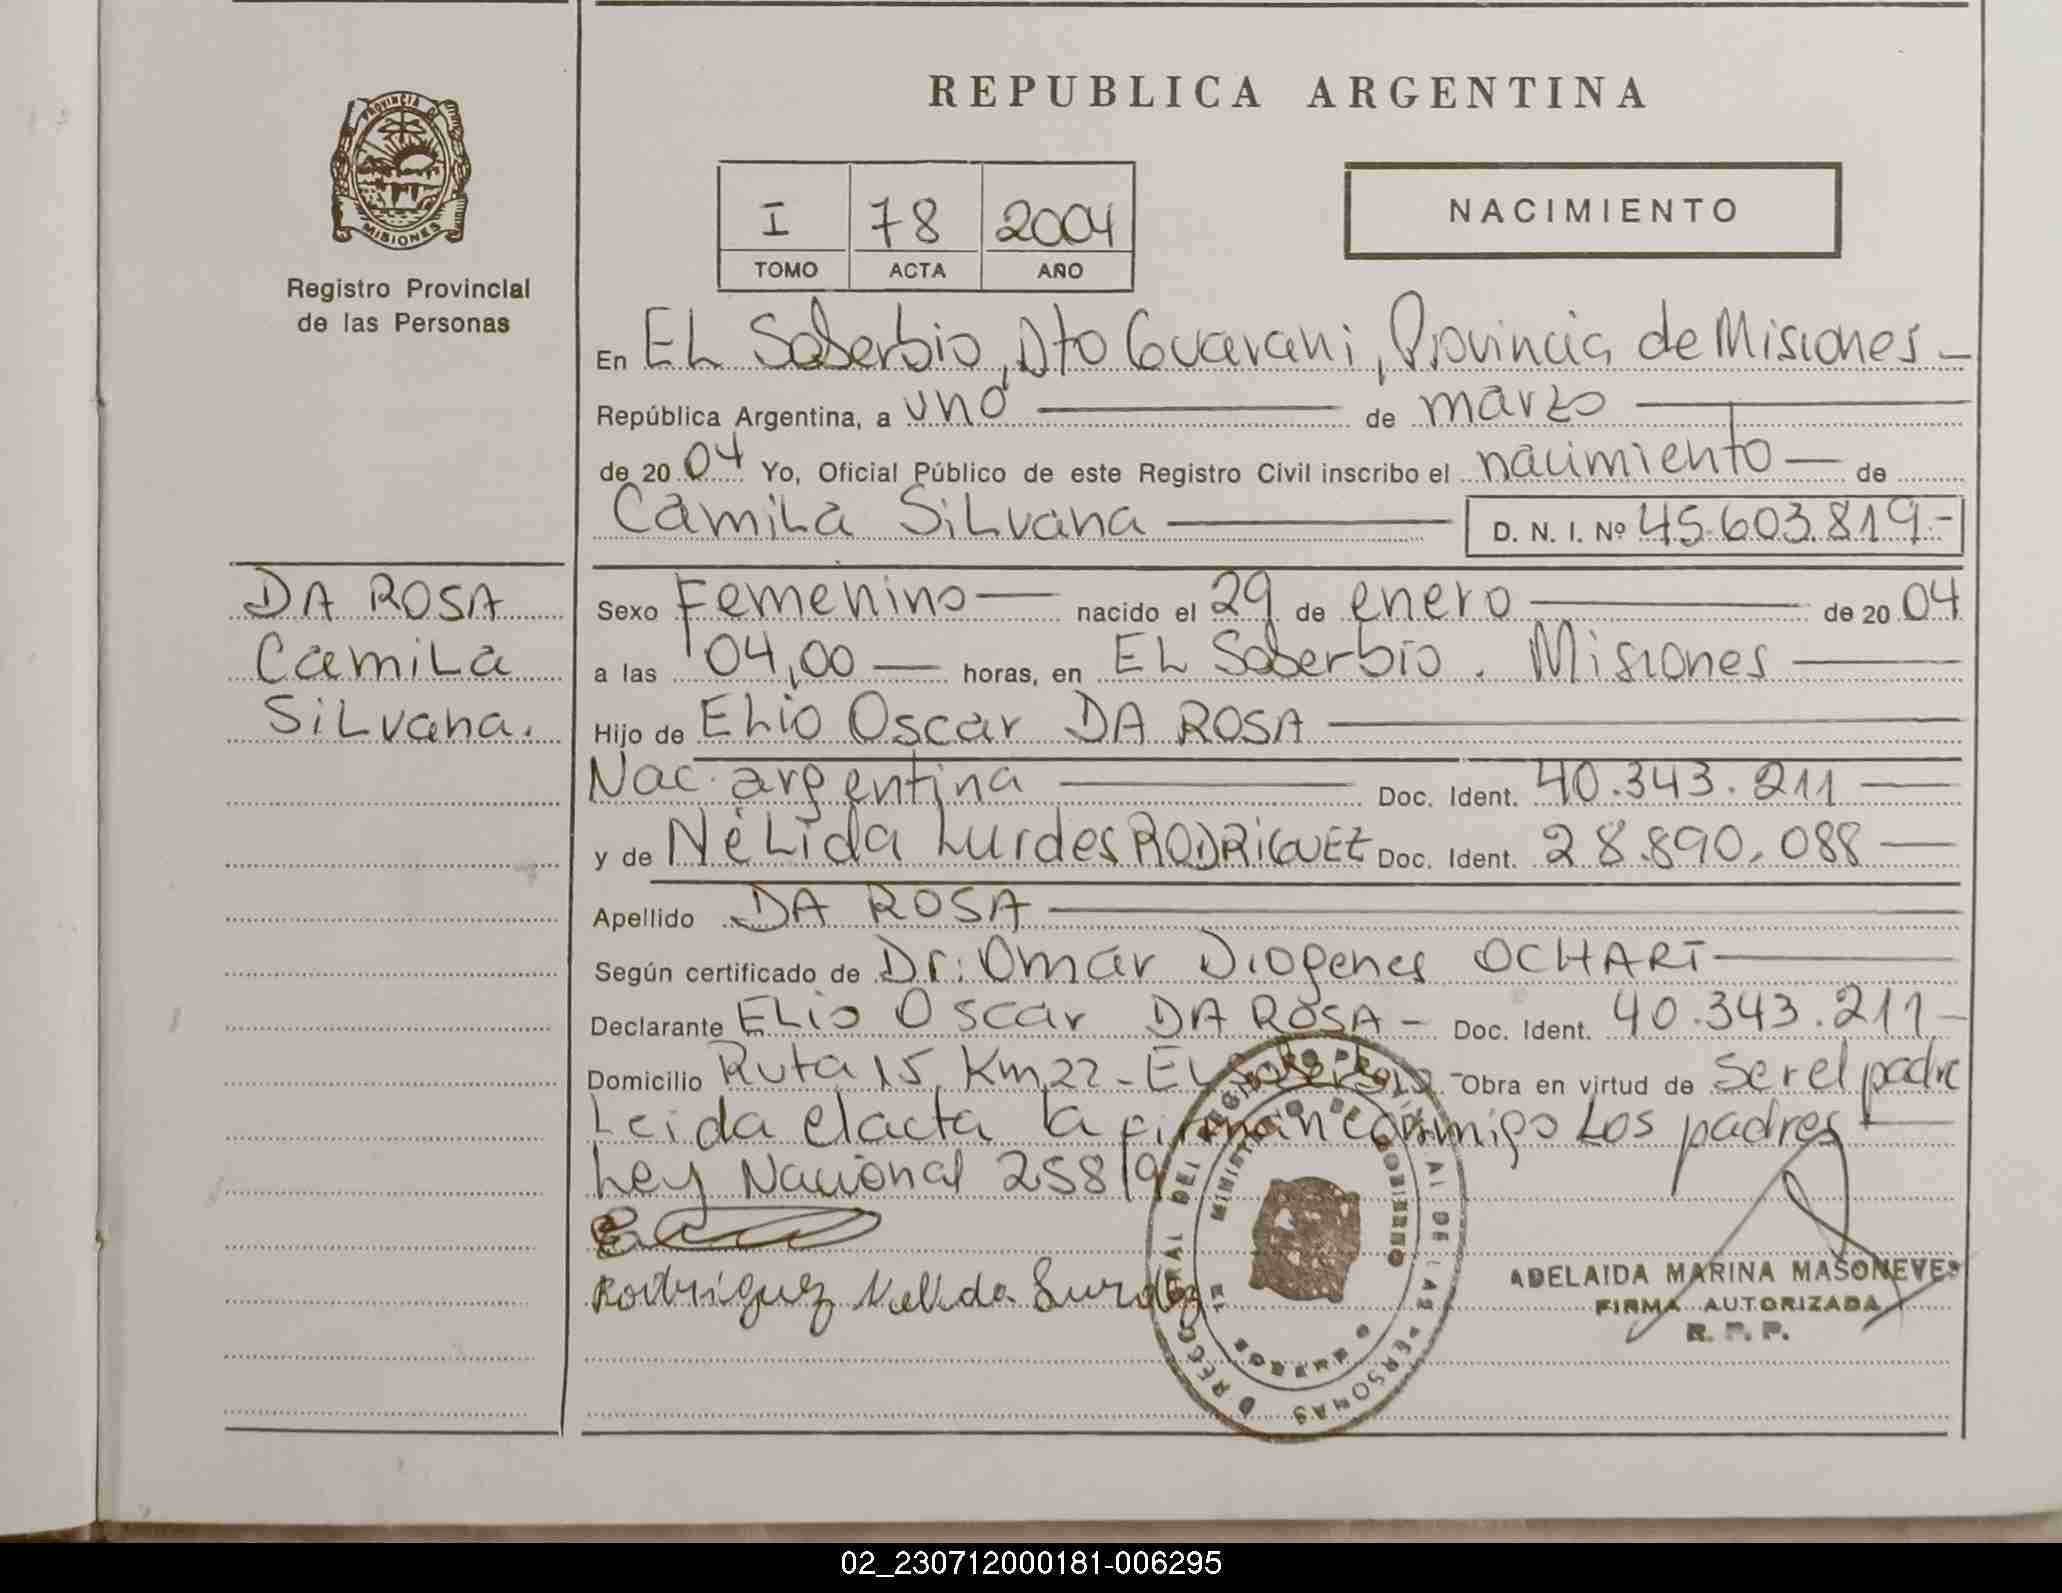 REPUBLICA ARGENTINA
PROVINCIA DE
MISIONES
Registro Provincial
de las Personas
I 78 2004
TOMO ACTA AÑO
NACIMIENTO
En EL Soberbio, Dto Guarani, Provincia de Misiones
República Argentina, a uno de marzo
de 2004 Yo, Oficial Público de este Registro Civil inscribo el nacimiento de
Camila Silvana D. N. I. Nº 45.603.819.-
DA ROSA
Camila
Silvana.
Sexo Femenino nacido el 29 de enero de 2004
a las 04,00 horas, en EL Soberbio. Misiones
Hijo de Elio Oscar DA ROSA
Nac. argentina Doc. Ident. 40.343.211
y de Nélida Lurdes RODRIGUEZ Doc. Ident. 28.890.088
Apellido DA ROSA
Según certificado de Dr: Omar Diogenes OCHART
Declarante Elio Oscar DA ROSA - Doc. Ident. 40.343.211-
Domicilio Ruta 15, Km 22 - El Soberbio.- Obra en virtud de ser el padre
Leida el acta la firman conmigo Los padres
Ley Nacional 25819
Rodriguez Nelida Lurdes
DIRECC GRAL DEL REGISTRO PROVINCIAL DE LAS PERSONAS
MINISTERIO DE GOBIERNO
EL SOBERBIO
ADELAIDA MARINA MASONEVES
FIRMA AUTORIZADA
R. P. P.
02_230712000181-006295